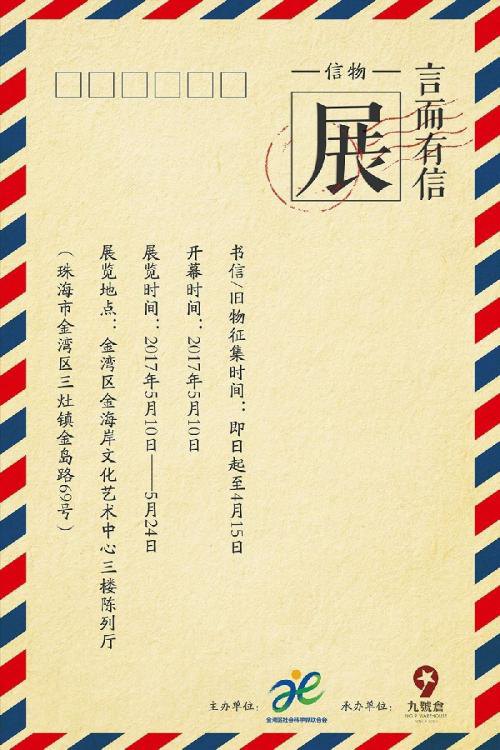 言而有信
信物
展
书信/旧物征集时间：即日起至4月15日
开幕时间：2017年5月10日
展览时间：2017年5月10日——5月24日
展览地点：金湾区金海岸文化艺术中心三楼陈列厅
（珠海市金湾区三灶镇金岛路69号）
主办单位：
金湾区社会科学界联合会
承办单位：
九號倉
NO.9 WAREHOUSE